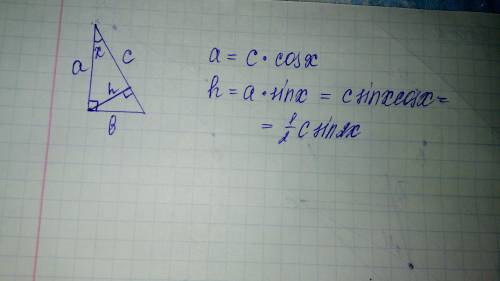 x
a
c
h
в
a = c · cosx
h = a · sinx = c sinxcosx =
= 1/2 c sin2x